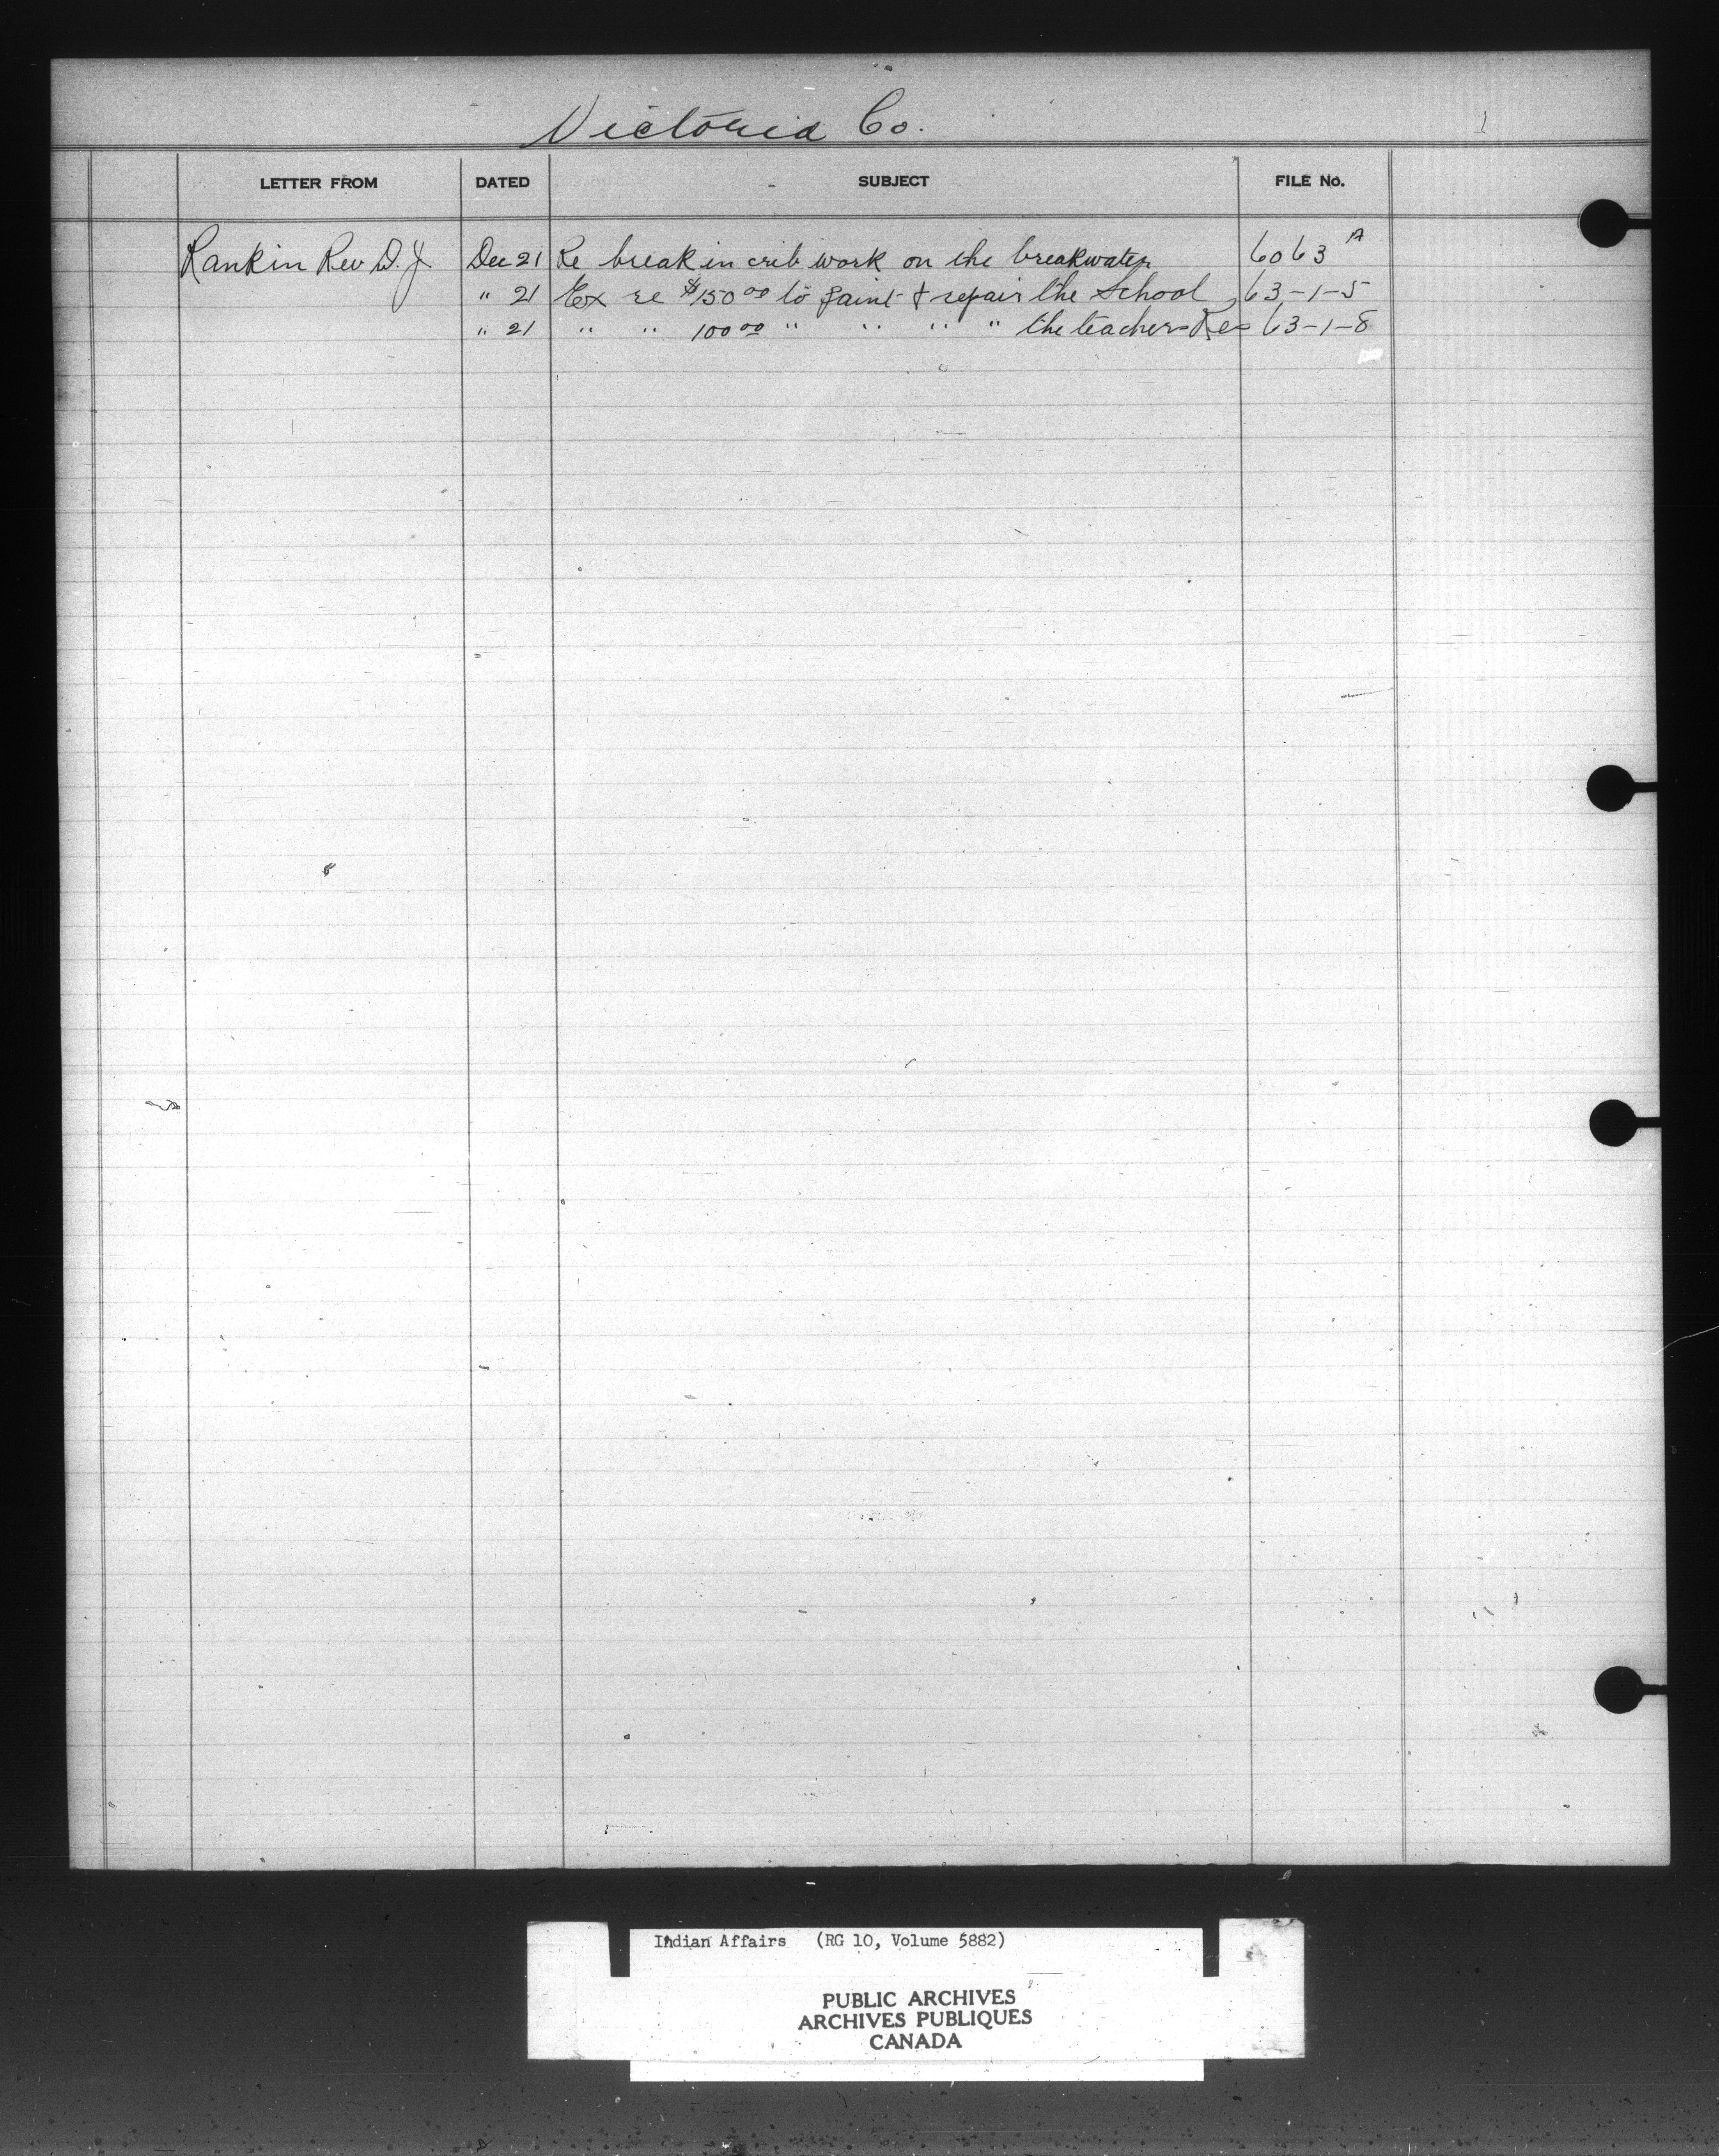 Victoria Co.
1
LETTER FROM DATED SUBJECT FILE No.
Rankin Rev D. J. Dec 21 Re break in crib work on the breakwater 6063 A
" 21 Ex re $150 00 to paint & repair the School 63-1-5
" 21 " " 100 00 " " " " the teachers Res 63-1-8
Indian Affairs (RG 10, Volume 5882)
PUBLIC ARCHIVES
ARCHIVES PUBLIQUES
CANADA